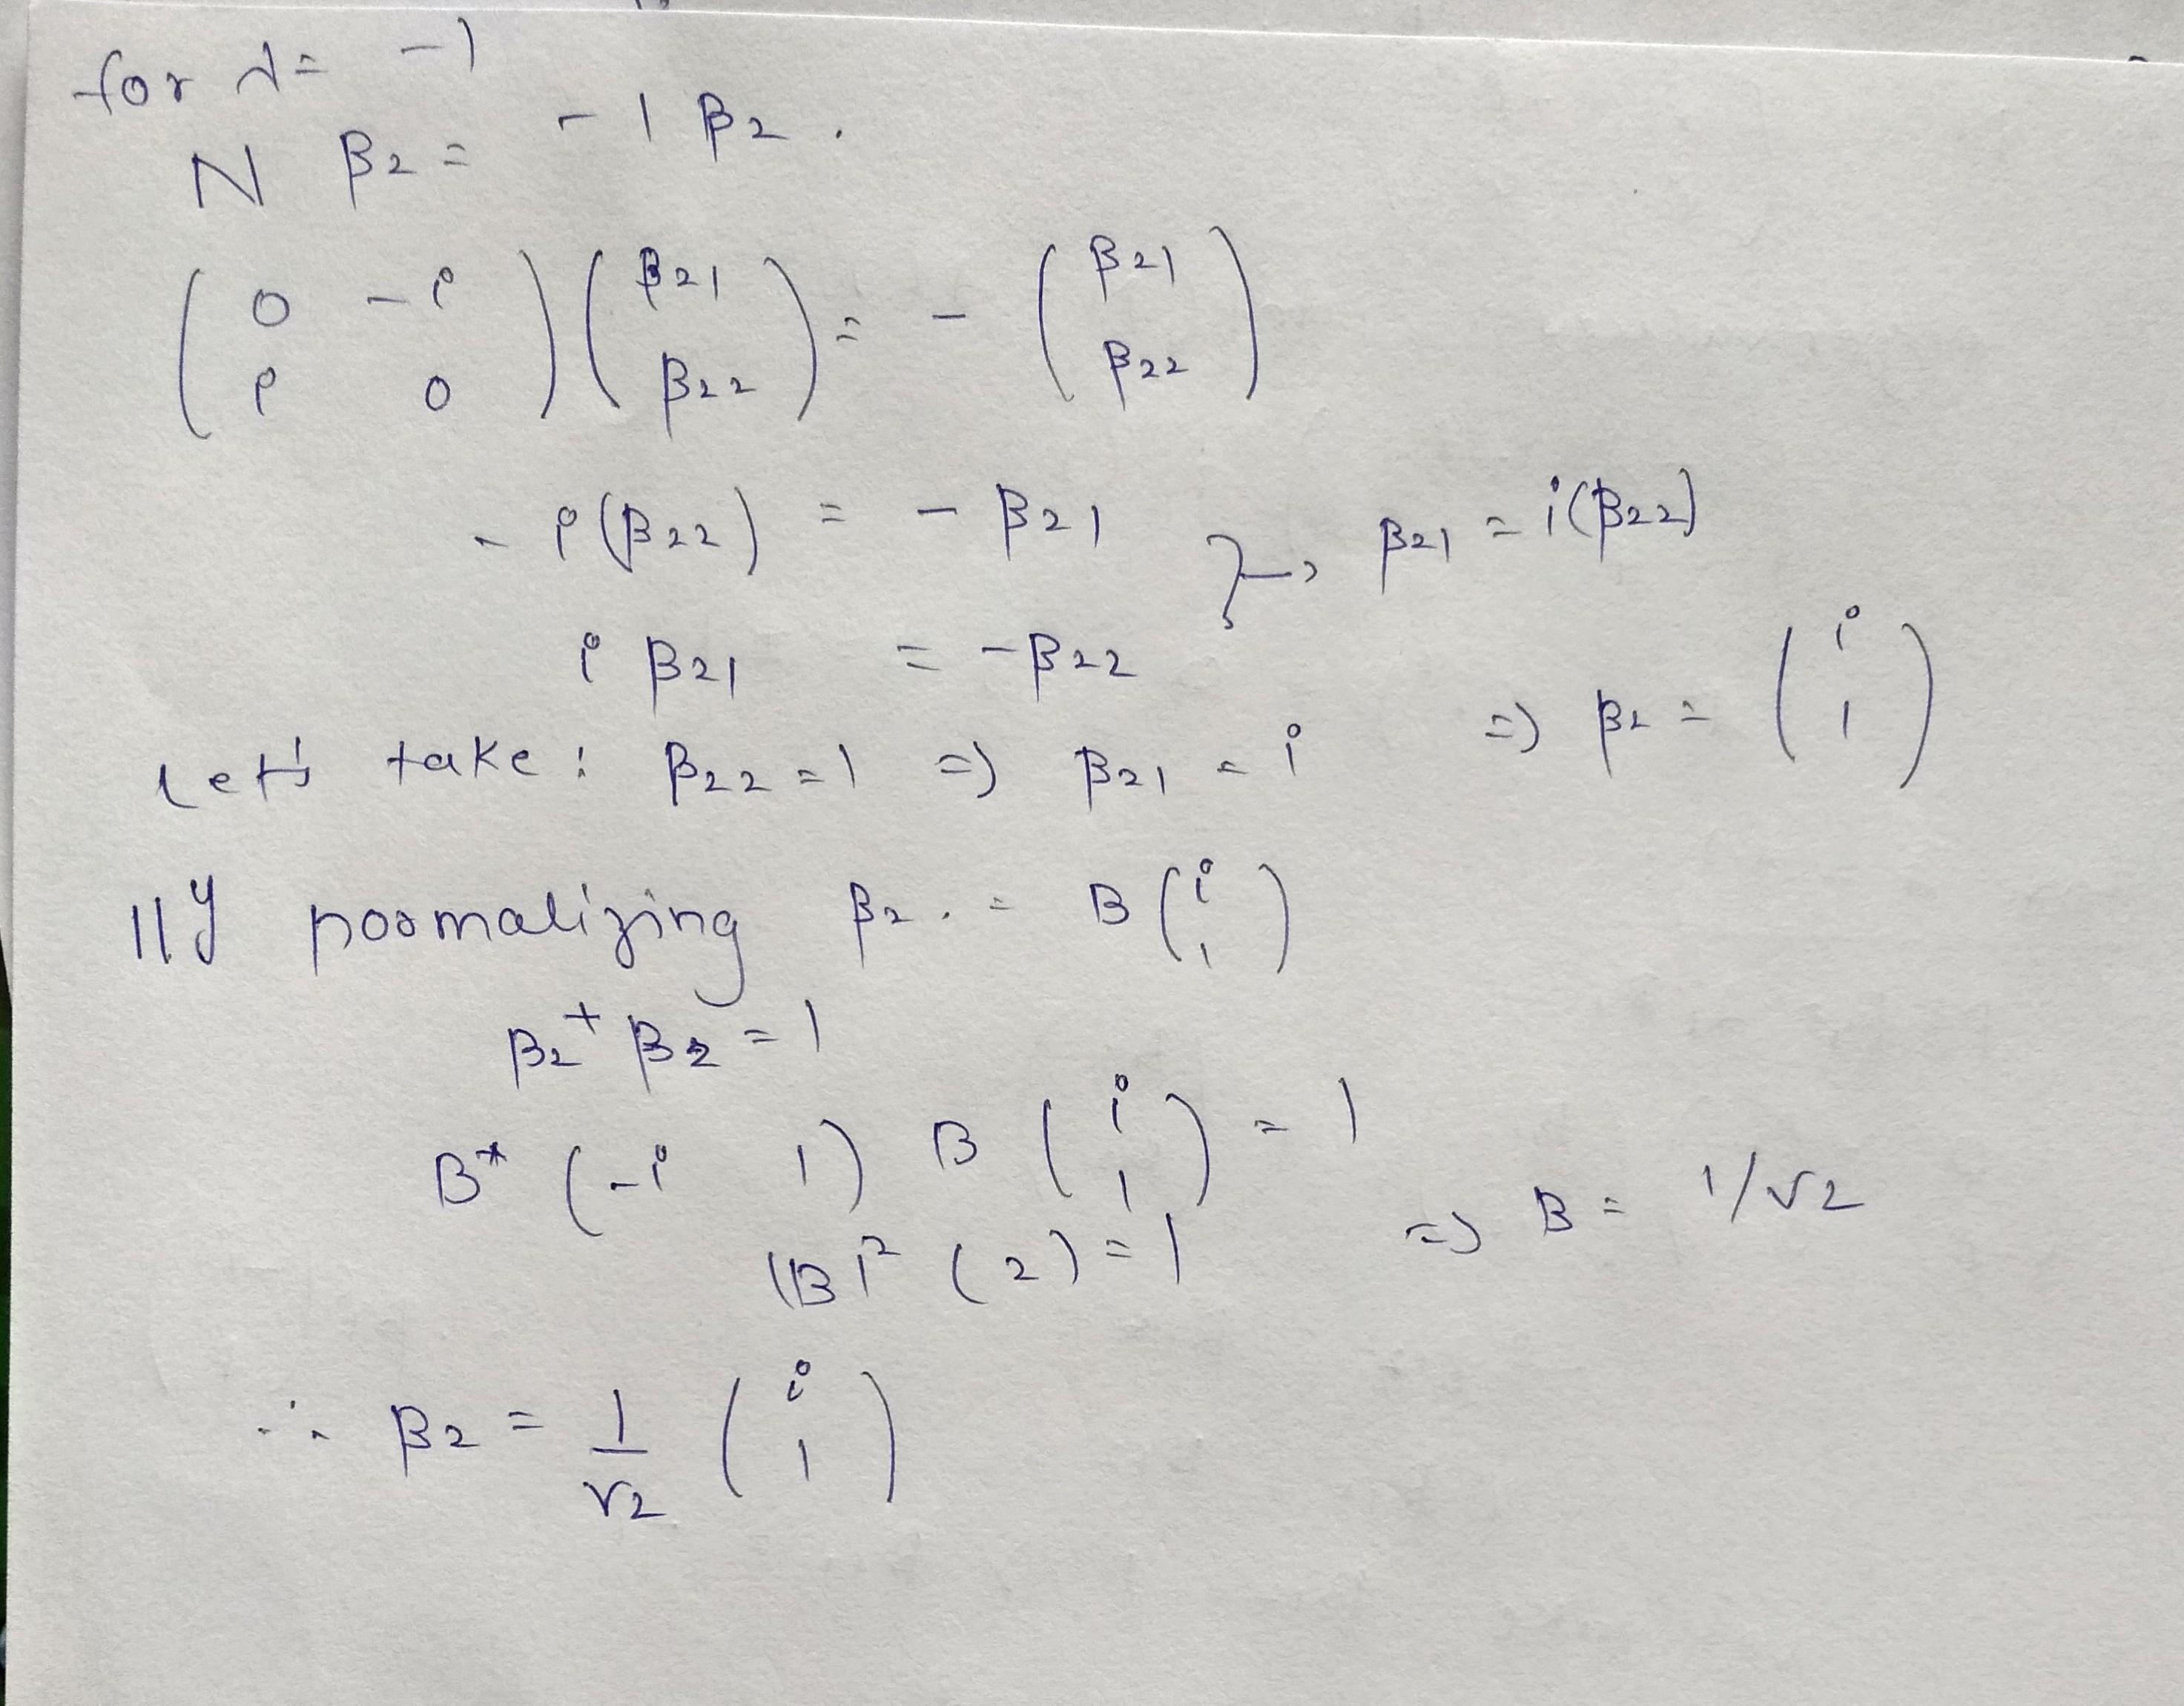 for λ = -1
N β₂ = -1 β₂.
( 0 -i ) ( β₂₁ ) = - ( β₂₁ )
( i 0 ) ( β₂₂ ) ( β₂₂ )
-i(β₂₂) = -β₂₁ } → β₂₁ = i(β₂₂)
i β₂₁ = -β₂₂
Let's take: β₂₂ = 1 => β₂₁ = i => β₂ = ( i 1 )
|||y normalizing β₂. = B ( i 1 )
β₂⁺ β₂ = 1
B* (-i 1) B ( i 1 ) = 1
|B|² (2) = 1 => B = 1/√2
∴ β₂ = 1/√2 ( i 1 )